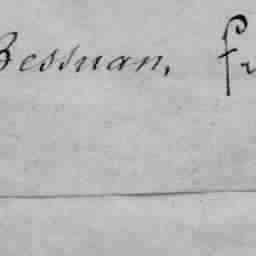 Bessuan, fr